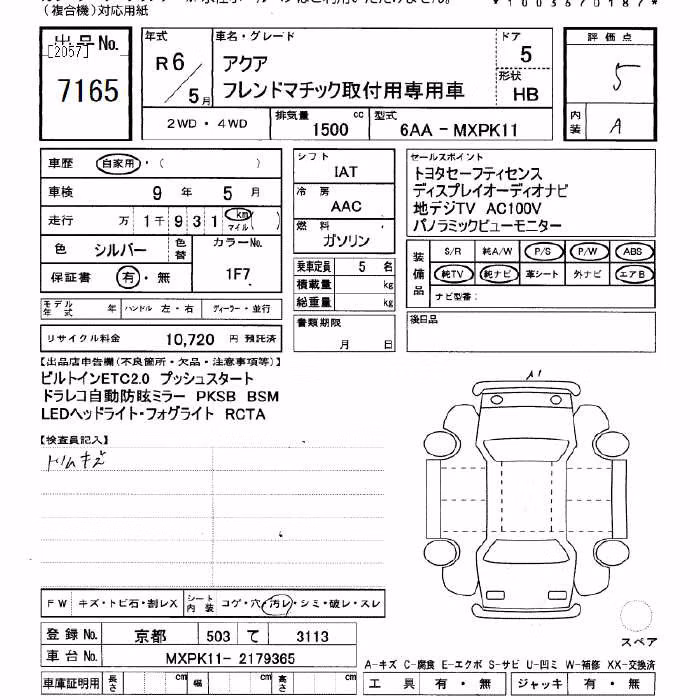 (複合機)対応用紙
*10036701877*
出品No. [2057] 7165
年式 R6/5月
車名・グレード アクア フレンドマチック取付用専用車
ドア 5
形状 HB
評価点 5
内装 A
2WD・4WD
排気量 1500 cc
型式 6AA-MXPK11
車歴 自家用・( )
車検 9年 5月
走行 万1千931 km マイル( )
色 シルバー 色替 カラーNo. 1F7
保証書 有・無
モデル年式 年 ハンドル 左・右 ディーラー・並行
リサイクル料金 10,720 円 預託済
シフト IAT
冷房 AAC
燃料 ガソリン
乗車定員 5 名
積載量 kg
総重量 kg
書類期限 月 日
セールスポイント
トヨタセーフティセンス
ディスプレイオーディオナビ
地デジTV AC100V
パノラミックビューモニター
装備品 S/R 純A/W P/S P/W ABS
純TV 純ナビ 革シート 外ナビ エアB
ナビ型番:
後日品
【出品店申告欄(不良箇所・欠品・注意事項等)】
ビルトインETC2.0 プッシュスタート
ドラレコ自動防眩ミラー PKSB BSM
LEDヘッドライト・フォグライト RCTA
【検査員記入】
トリムキズ
A1
FW キズ・トビ石・割レX シート内装 コゲ・穴・汚レ・シミ・破レ・スレ
登録No. 京都 503 て 3113
車台No. MXPK11-2179365
車庫証明用 長さ cm 幅 cm 高さ cm
スペア
A-キズ C-腐食 E-エクボ S-サビ U-凹ミ W-補修 XX-交換済
工具 有・無 ジャッキ 有・無